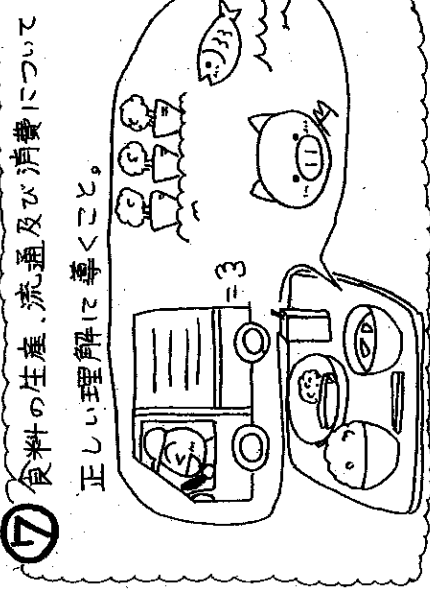 ⑦ 食料の生産、流通及び消費について
正しい理解に導くこと。